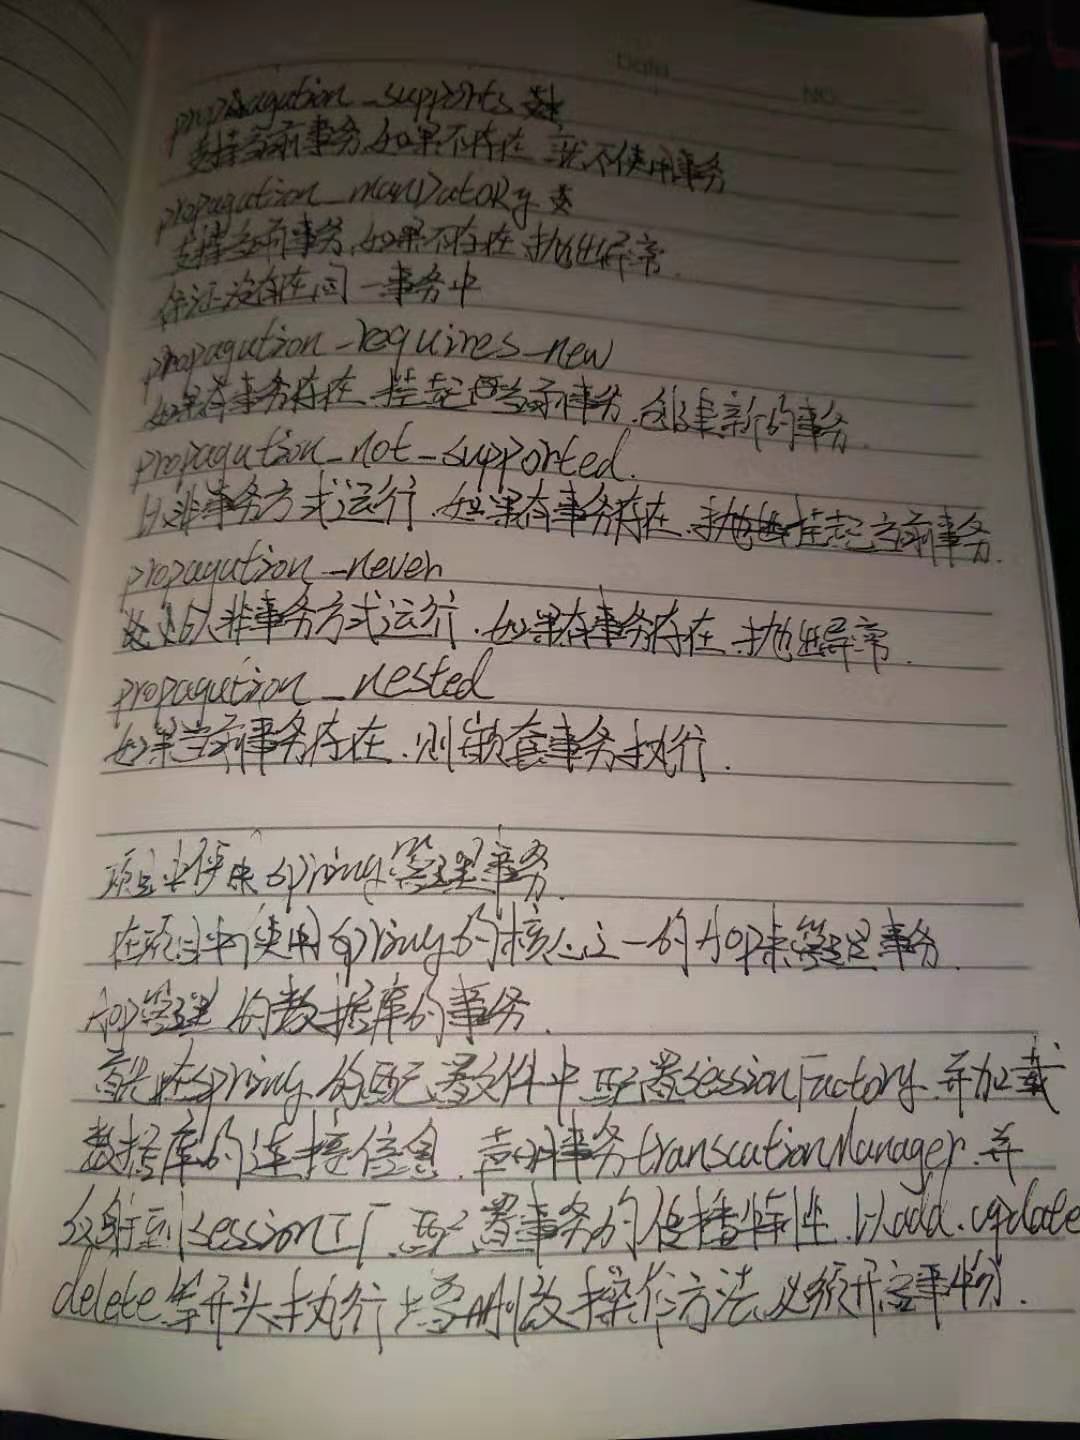 Date
NO
propagution_supports
支持当前事务.如果不存在 就不使用事务
propagution_manDatoRy
支持当前事务.如果不存在.抛出异常.
保证没有在同一事务中
propagution_requires_new
如果有事务存在.挂起当前事务.创建新的事务.
propagution_not_supported.
以非事务方式运行.如果有事务存在.挂起当前事务.
propagution_never
以非事务方式运行.如果有事务存在.抛出异常.
propagution_nested
如果当前事务存在.则嵌套事务执行.
项目中使用spring管理事务.
在项目中使用spring的核心之一的Aop来管理事务.
Aop管理的数据库的事务.
首先在spring的配置文件中配置sessionFactory.并加载
数据库的连接信息.声明事务transcationManager.并
反射到session工厂.配置事务的传播特性.以add.update
delete等开头执行增删改操作方法.必须开启事务.